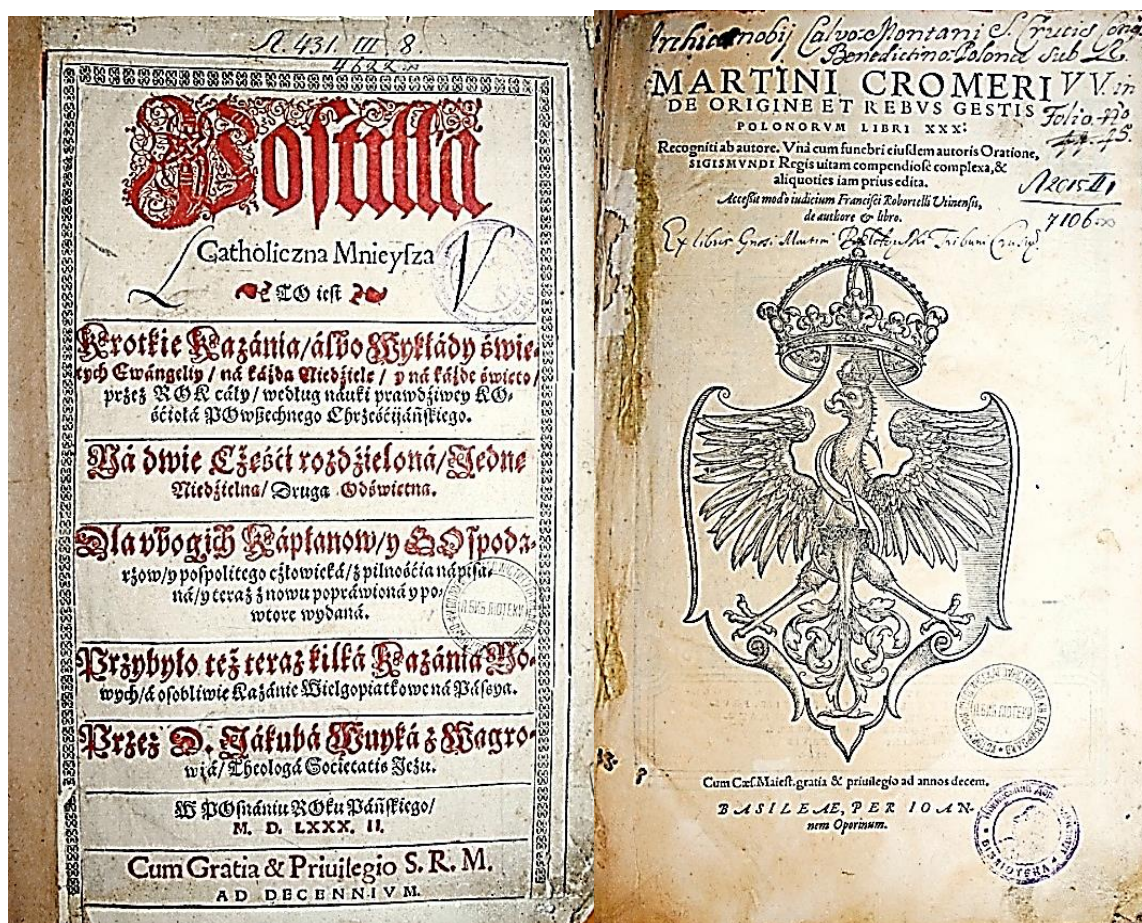 A. 431. III. 8.
4622
Postilla
Catholiczna Mnieyſza
L V
TO ieſt
Krotkie Kazánia/álbo Wykłády świę-
tych Ewángeliy/ ná káżdą Niedźielę/ y ná káżde święto/
przez ROK cáły/ według náuki prawdźiwey KO-
śćiołá POwßechnego Chrześćijáńſkiego.
Ná dwie Cżęśći rozdźielona/Jednę
Niedźielną/ Druga Odświętną.
Dla vbogich Kápłanow/y GOſpodá-
rzow/y poſpolitego cżłowieká/z pilnośćią nápiſa-
ná/y teraz znowu popráwiona y po-
wtore wydána.
Przybyło też teraz kilká Kazánia No-
wych/á oſobliwie Kazánie Wielgopiątkowe ná Páſsyą.
Przez D. Jákubá Wuyká z Wągro-
wcá/ Theologá Societatis Jeżu.
W POſnániu ROku Páńſkiego/
M. D. LXXX. II.
Cum Gratia & Priuilegio S. R. M.
AD DECENNIVM.
Calvo Montani S. Crucis
Benedictino Polona sub
MARTINI CROMERI
V V. in
DE ORIGINE ET REBVS GESTIS
Folio
POLONORVM LIBRI XXX:
25.
Recogniti ab autore. Vnà cum funebri eiuſdem autoris Oratione,
SIGISMVNDI Regis uitam compendioſè complexa, &
aliquoties iam prius edita.
Acceſsit modò iudicium Franciſci Robortelli Vtinenſis,
de authore & libro.
7106
Ex libris Martini Tribuni
Cum Cæſ. Maieſt. gratia & priuilegio ad annos decem.
BASILEAE, PER IOAN-
nem Oporinum.
БИБЛІОТЕКИ
БИБЛІОТЕКИ
BIBLIOTEKA